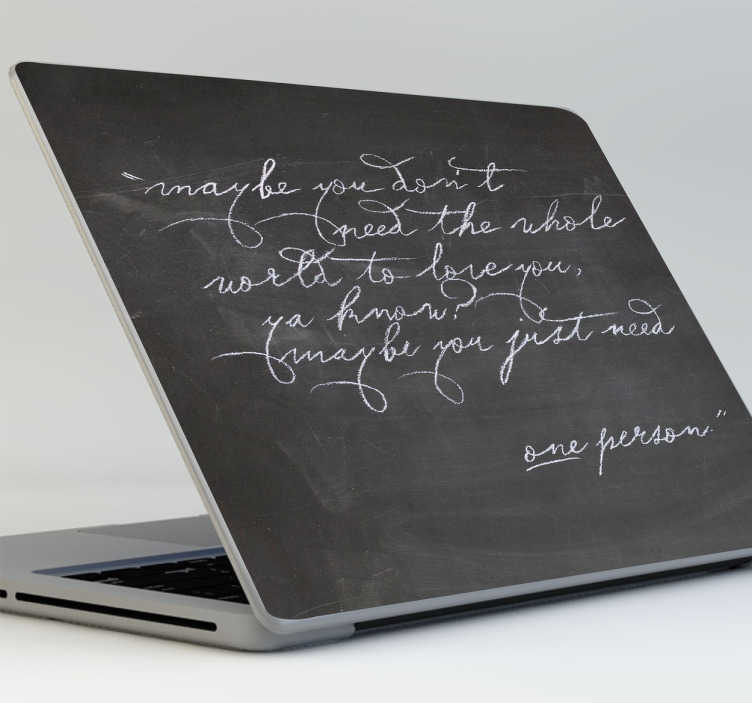 "maybe you don't
need the whole
world to love you,
ya know?
maybe you just need
one person."